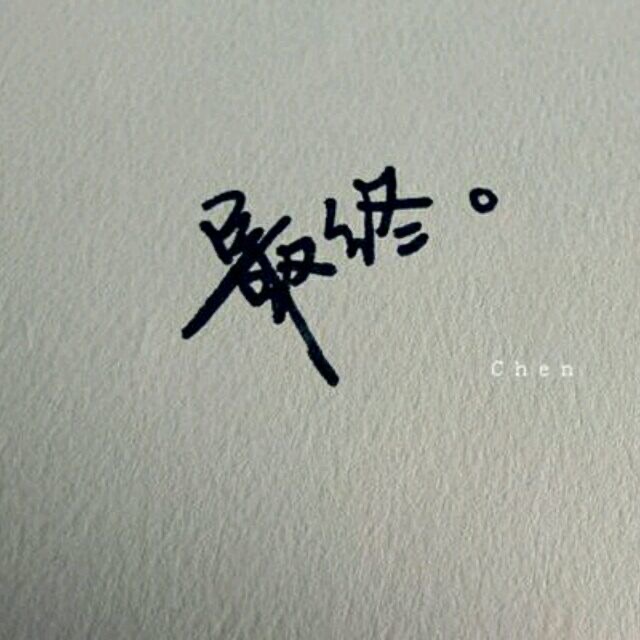 最终。
Chen